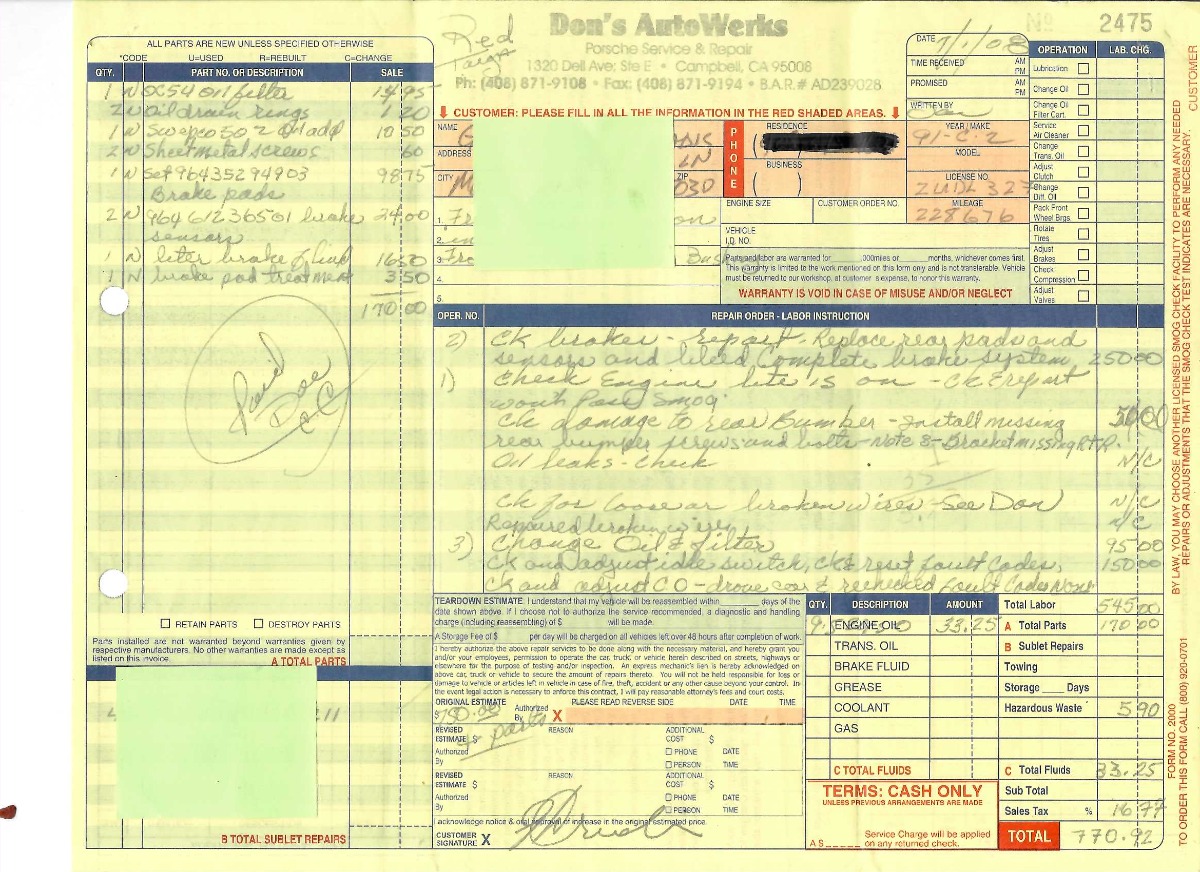 Don's AutoWerks
Porsche Service & Repair
1320 Dell Ave; Ste E • Campbell, CA 95008
Ph: (408) 871-9108 • Fax: (408) 871-9194 • B.A.R.# AD239028
Nº 2475
Red
Targa
ALL PARTS ARE NEW UNLESS SPECIFIED OTHERWISE
*CODE U=USED R=REBUILT C=CHANGE
QTY. PART NO. OR DESCRIPTION SALE
1 N OC54 Oil filter 14 95
2 N Oil drain rings 1 20
1 N Swepco 502 Oil add 10 50
2 N Sheet metal screws 60
1 N Set 96435294903 98 75
Brake pads
2 N 96461236501 brake 24 00
sensors
1 N liter brake fluid 16 50
1 N brake pad treatment 3 50
170 00
Paid
RETAIN PARTS DESTROY PARTS
Parts installed are not warranted beyond warranties given by
respective manufacturers. No other warranties are made except as
listed on this invoice.
A TOTAL PARTS
B TOTAL SUBLET REPAIRS
CUSTOMER: PLEASE FILL IN ALL THE INFORMATION IN THE RED SHADED AREAS.
NAME
ADDRESS LN
CITY ZIP 030
PHONE
RESIDENCE
BUSINESS
DATE 7/1/08
TIME RECEIVED AM PM
PROMISED AM PM
WRITTEN BY Don
YEAR / MAKE 91-C-2
MODEL
LICENSE NO.
MILEAGE 228676
ENGINE SIZE CUSTOMER ORDER NO.
VEHICLE
I.D. NO.
1.
2.
3.
4.
5.
Parts and labor are warranted for miles or months, whichever comes first.
This warranty is limited to the work mentioned on this form only and is not transferable. Vehicle
must be returned to our workshop, at customer's expense, to honor this warranty.
WARRANTY IS VOID IN CASE OF MISUSE AND/OR NEGLECT
OPERATION LAB. CHG.
Lubrication
Change Oil
Change Oil Filter Cart.
Service Air Cleaner
Change Trans. Oil
Adjust Clutch
Change Diff. Oil
Pack Front Wheel Brgs.
Rotate Tires
Adjust Brakes
Check Compression
Adjust Valves
OPER. NO. REPAIR ORDER - LABOR INSTRUCTION
2) CK brakes - report - Replace rear pads and
sensors and bleed Complete brake system 250 00
1) Check Engine lite is on - CK & report
wont Pass Smog
CK damage to rear Bumper - Install missing 50 00
rear bumper screws and bolts - Note 8 - Bracket missing RTR
Oil leaks - check N/C
CK for loose or broken wires - See Don N/C
Repaired broken wire, N/C
3) Change Oil & filter 95 00
CK and adjust idle switch, CK & reset fault Codes, 150 00
CK and adjust CO - drove car & rechecked fault Codes None
TEARDOWN ESTIMATE: I understand that my vehicle will be reassembled within days of the
date shown above. If I choose not to authorize the service recommended, a diagnostic and handling
charge (including reassembling) of $ will be made.
A Storage Fee of $ per day will be charged on all vehicles left over 48 hours after completion of work.
I hereby authorize the above repair services to be done along with the necessary material, and hereby grant you
and/or your employees, permission to operate the car, truck, or vehicle herein described on streets, highways or
elsewhere for the purpose of testing and/or inspection. An express mechanic's lien is hereby acknowledged on
above car, truck or vehicle to secure the amount of repairs thereto. You will not be held responsible for loss or
damage to vehicle or articles left in vehicle in case of fire, theft, accident or any other cause beyond your control. In
the event legal action is necessary to enforce this contract, I will pay reasonable attorney's fees and court costs.
PLEASE READ REVERSE SIDE
ORIGINAL ESTIMATE $ Authorized By X DATE TIME
& parts
REVISED ESTIMATE $ REASON ADDITIONAL COST $
Authorized By PHONE DATE
PERSON TIME
REVISED ESTIMATE $ REASON ADDITIONAL COST $
Authorized By PHONE DATE
PERSON TIME
I acknowledge notice & oral approval of increase in the original estimated price.
CUSTOMER SIGNATURE X
QTY. DESCRIPTION AMOUNT
ENGINE OIL 33.25
TRANS. OIL
BRAKE FLUID
GREASE
COOLANT
GAS
C TOTAL FLUIDS
TERMS: CASH ONLY
UNLESS PREVIOUS ARRANGEMENTS ARE MADE
A $ Service Charge will be applied
on any returned check.
Total Labor 545 00
A Total Parts 170 00
B Sublet Repairs
Towing
Storage Days
Hazardous Waste 5 90
C Total Fluids 33.25
Sub Total
Sales Tax % 16 77
TOTAL 770.92
CUSTOMER
BY LAW, YOU MAY CHOOSE ANOTHER LICENSED SMOG CHECK FACILITY TO PERFORM ANY NEEDED
REPAIRS OR ADJUSTMENTS THAT THE SMOG CHECK TEST INDICATES ARE NECESSARY.
FORM NO. 2000
TO ORDER THIS FORM CALL (800) 9920-0701